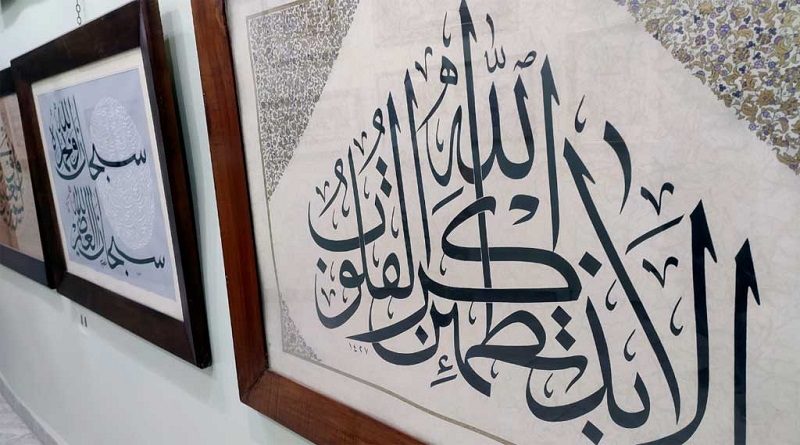 الا بذكر الله تطمئن القلوب
١٤٢٧
سبحان الله وبحمده
سبحان الله العظيم